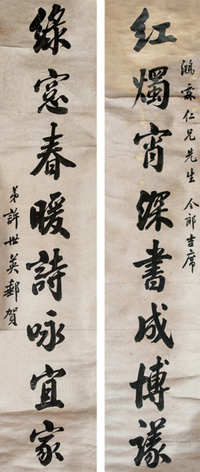 鴻霖仁兄先生 令郎吉席
紅燭宵深書成博議
綠窓春暖詩咏宜家
弟許世英郵賀